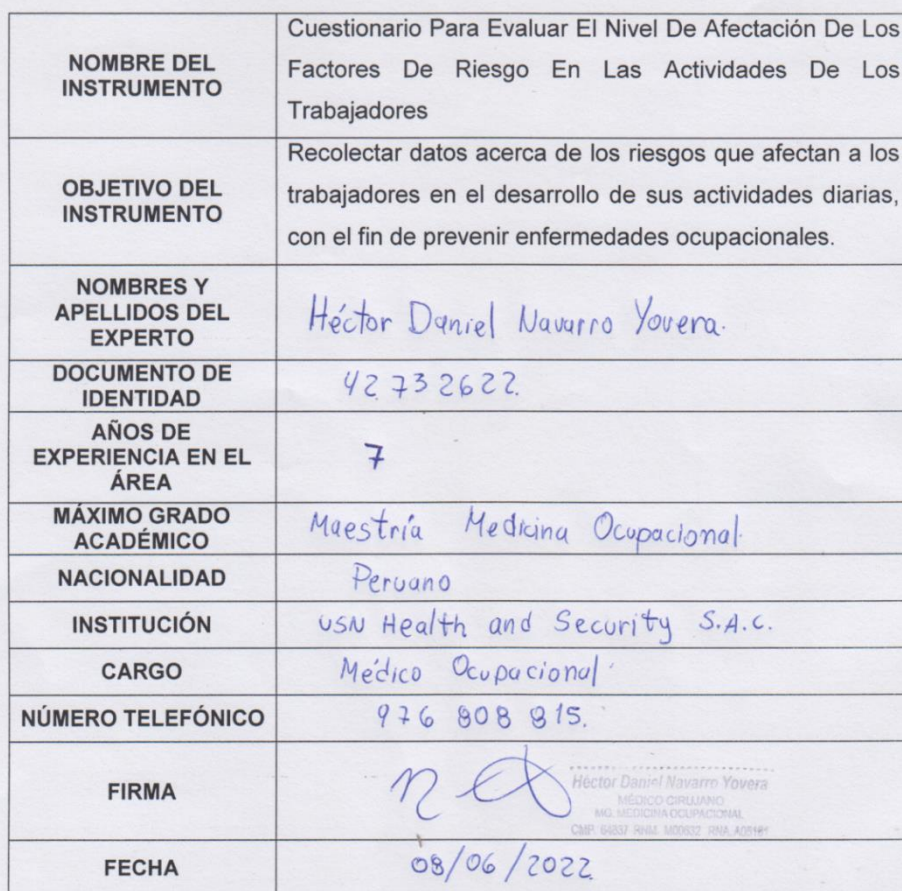 NOMBRE DEL
INSTRUMENTO
Cuestionario Para Evaluar El Nivel De Afectación De Los
Factores De Riesgo En Las Actividades De Los
Trabajadores
OBJETIVO DEL
INSTRUMENTO
Recolectar datos acerca de los riesgos que afectan a los
trabajadores en el desarrollo de sus actividades diarias,
con el fin de prevenir enfermedades ocupacionales.
NOMBRES Y
APELLIDOS DEL
EXPERTO
Héctor Daniel Navarro Yovera.
DOCUMENTO DE
IDENTIDAD
42732622.
AÑOS DE
EXPERIENCIA EN EL
ÁREA
7
MÁXIMO GRADO
ACADÉMICO
Maestría Medicina Ocupacional.
NACIONALIDAD
Peruano
INSTITUCIÓN
USN Health and Security S.A.C.
CARGO
Médico Ocupacional.
NÚMERO TELEFÓNICO
976 808 815.
FIRMA
Héctor Daniel Navarro Yovera
MÉDICO CIRUJANO
MG. MEDICINA OCUPACIONAL
CMP. RNM. RNA.
FECHA
08/06/2022